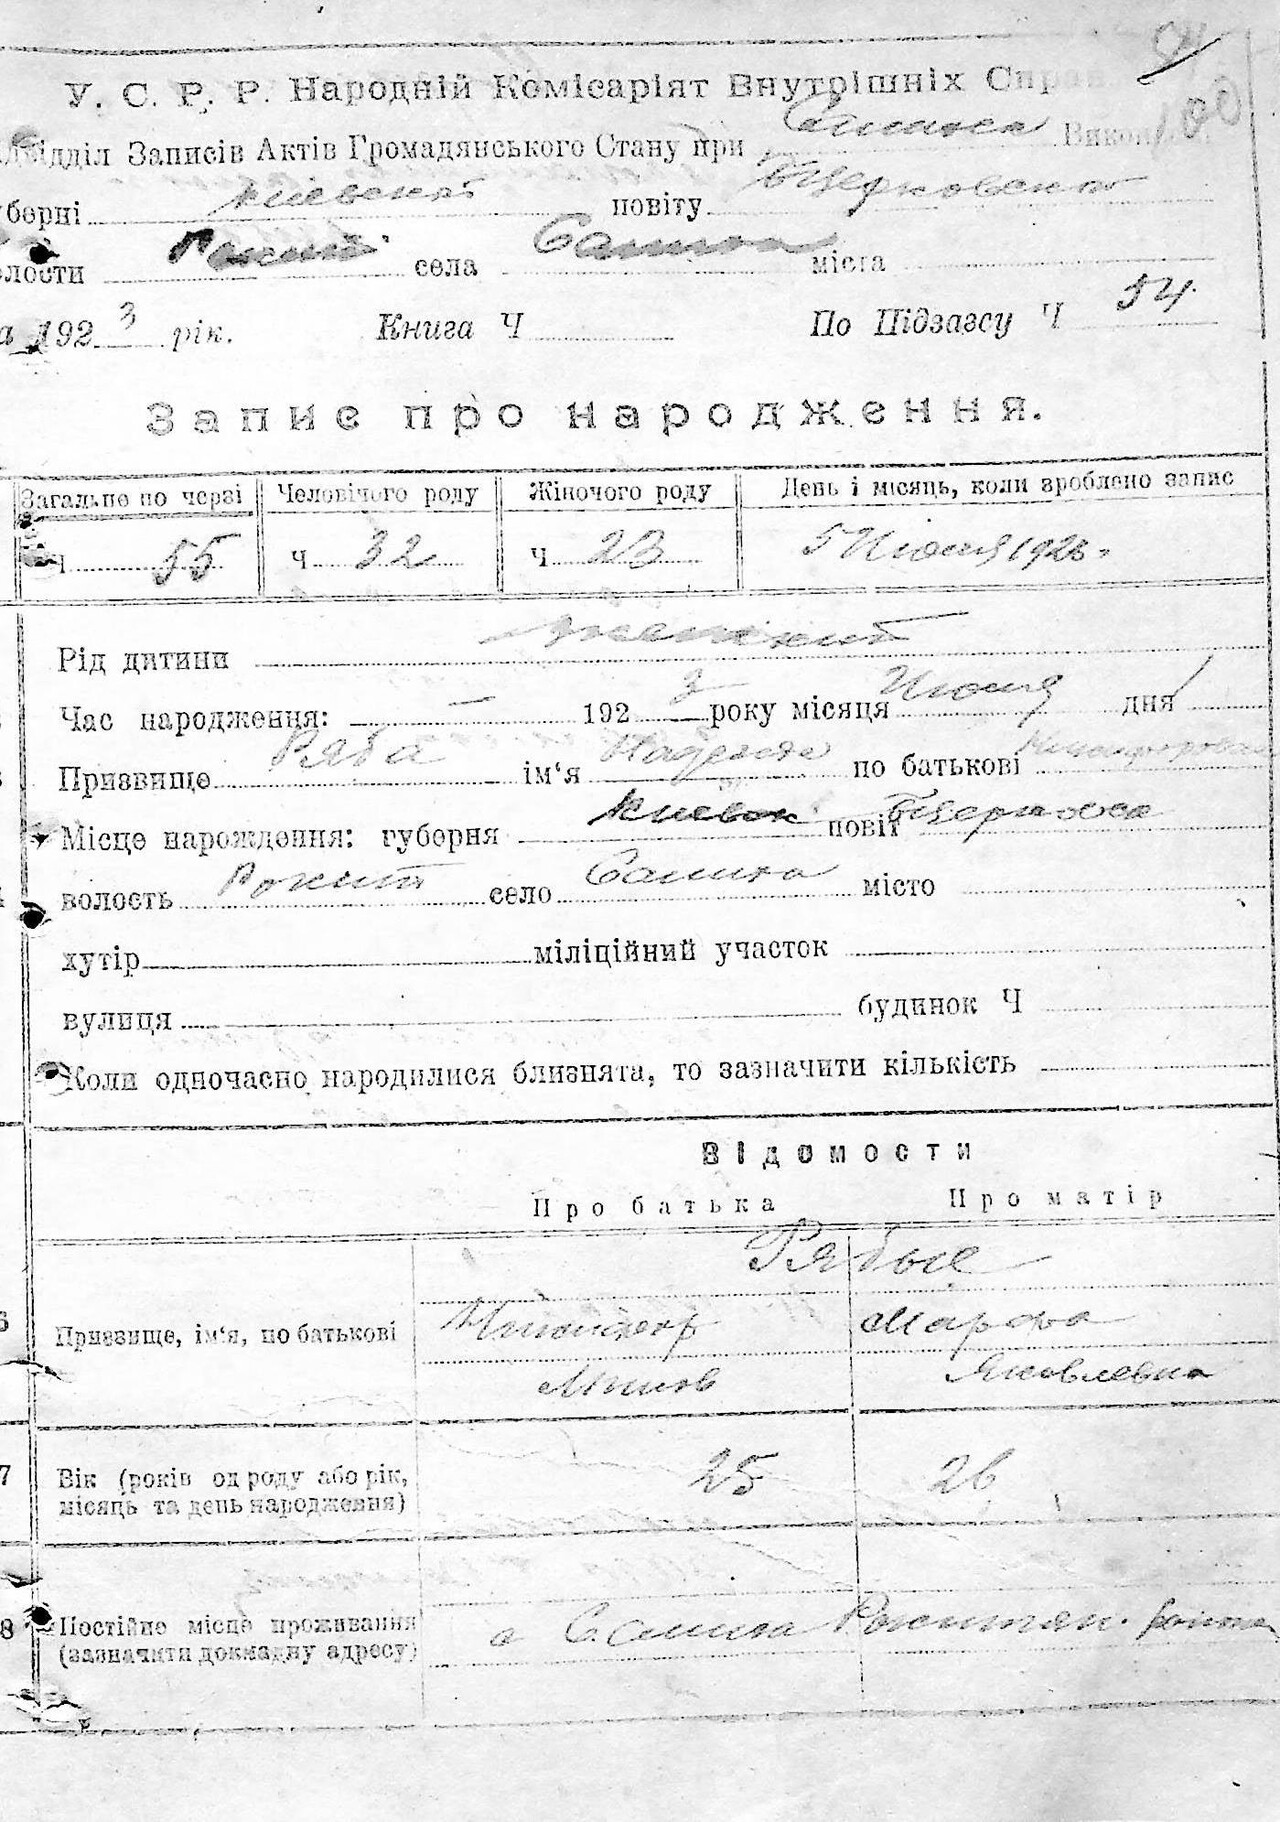 У. С. Р. Р. Народній Комісаріят Внутрішніх Справ
ідділ Записів Актів Громадянського Стану при Викон
уберні Киевской повіту БЦерковской
олости Рокит села Савинка міста
а 1923 рік. Книга Ч По Підзагсу Ч 54.
Запис про народження.
Загальне по черзі Человічого роду Жіночого роду День і місяць, коли зроблено запис
Ч 55 Ч 32 Ч 23 5 Июля 1923.
Рід дитини женский
Час народження: — 1923 року місяця Июля дня 1
Призвище Ряба ім‘я Надежда по батькові
Місце народження: губерня Киевск повіт БЦерковск
волость Рокит село місто
хутір міліційний участок
вулиця будинок Ч
Коли одночасно народилися близнята, то зазначити кількість
Відомости
Про батька Про матір
Рябые
6 Призвище, ім‘я, по батькові Никифор Марфа
Яковлевна
7 Вік (років од роду або рік, 25 26
місяць та день народження)
8 Постійне місце проживання
(зазначити докладну адресу)